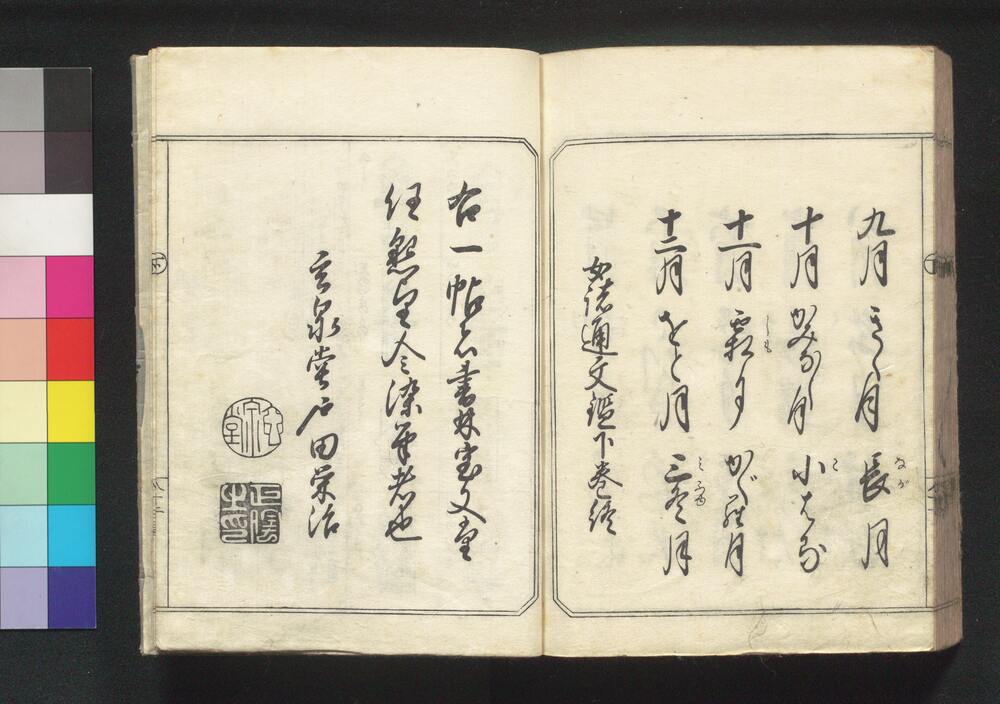 九月 きく月 長月
なが
十月 かみなし月 小はる
こ
十一月 霜月 かぐら月
しも
十二月 をと月 三冬月
みふゆ
女諸通文鑑下巻終
右一帖者書林宝文堂
任懇望令染筆者也
玄泉堂戸田栄治